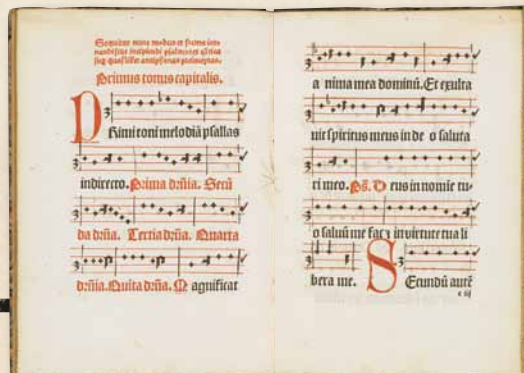 Sequitur nunc modus et forma into
nandi siue incipiendi psalmos et cãtica
sup quaslibet antiphonas
Primus tonus capitalis.
PRimi toni melodiã psallas
indirecto. Prima drñia. Secũ
da drñia. Tertia drñia. Quarta
drñia. Quita drñia. Magnificat
a nima mea dominũ. Et exulta
uit spiritus meus in de o saluta
ri meo. Ps. Deus in nomĩe tu-
o saluũ me fac ⁊ in virtute tua li
bera me. SEcundũ autẽ